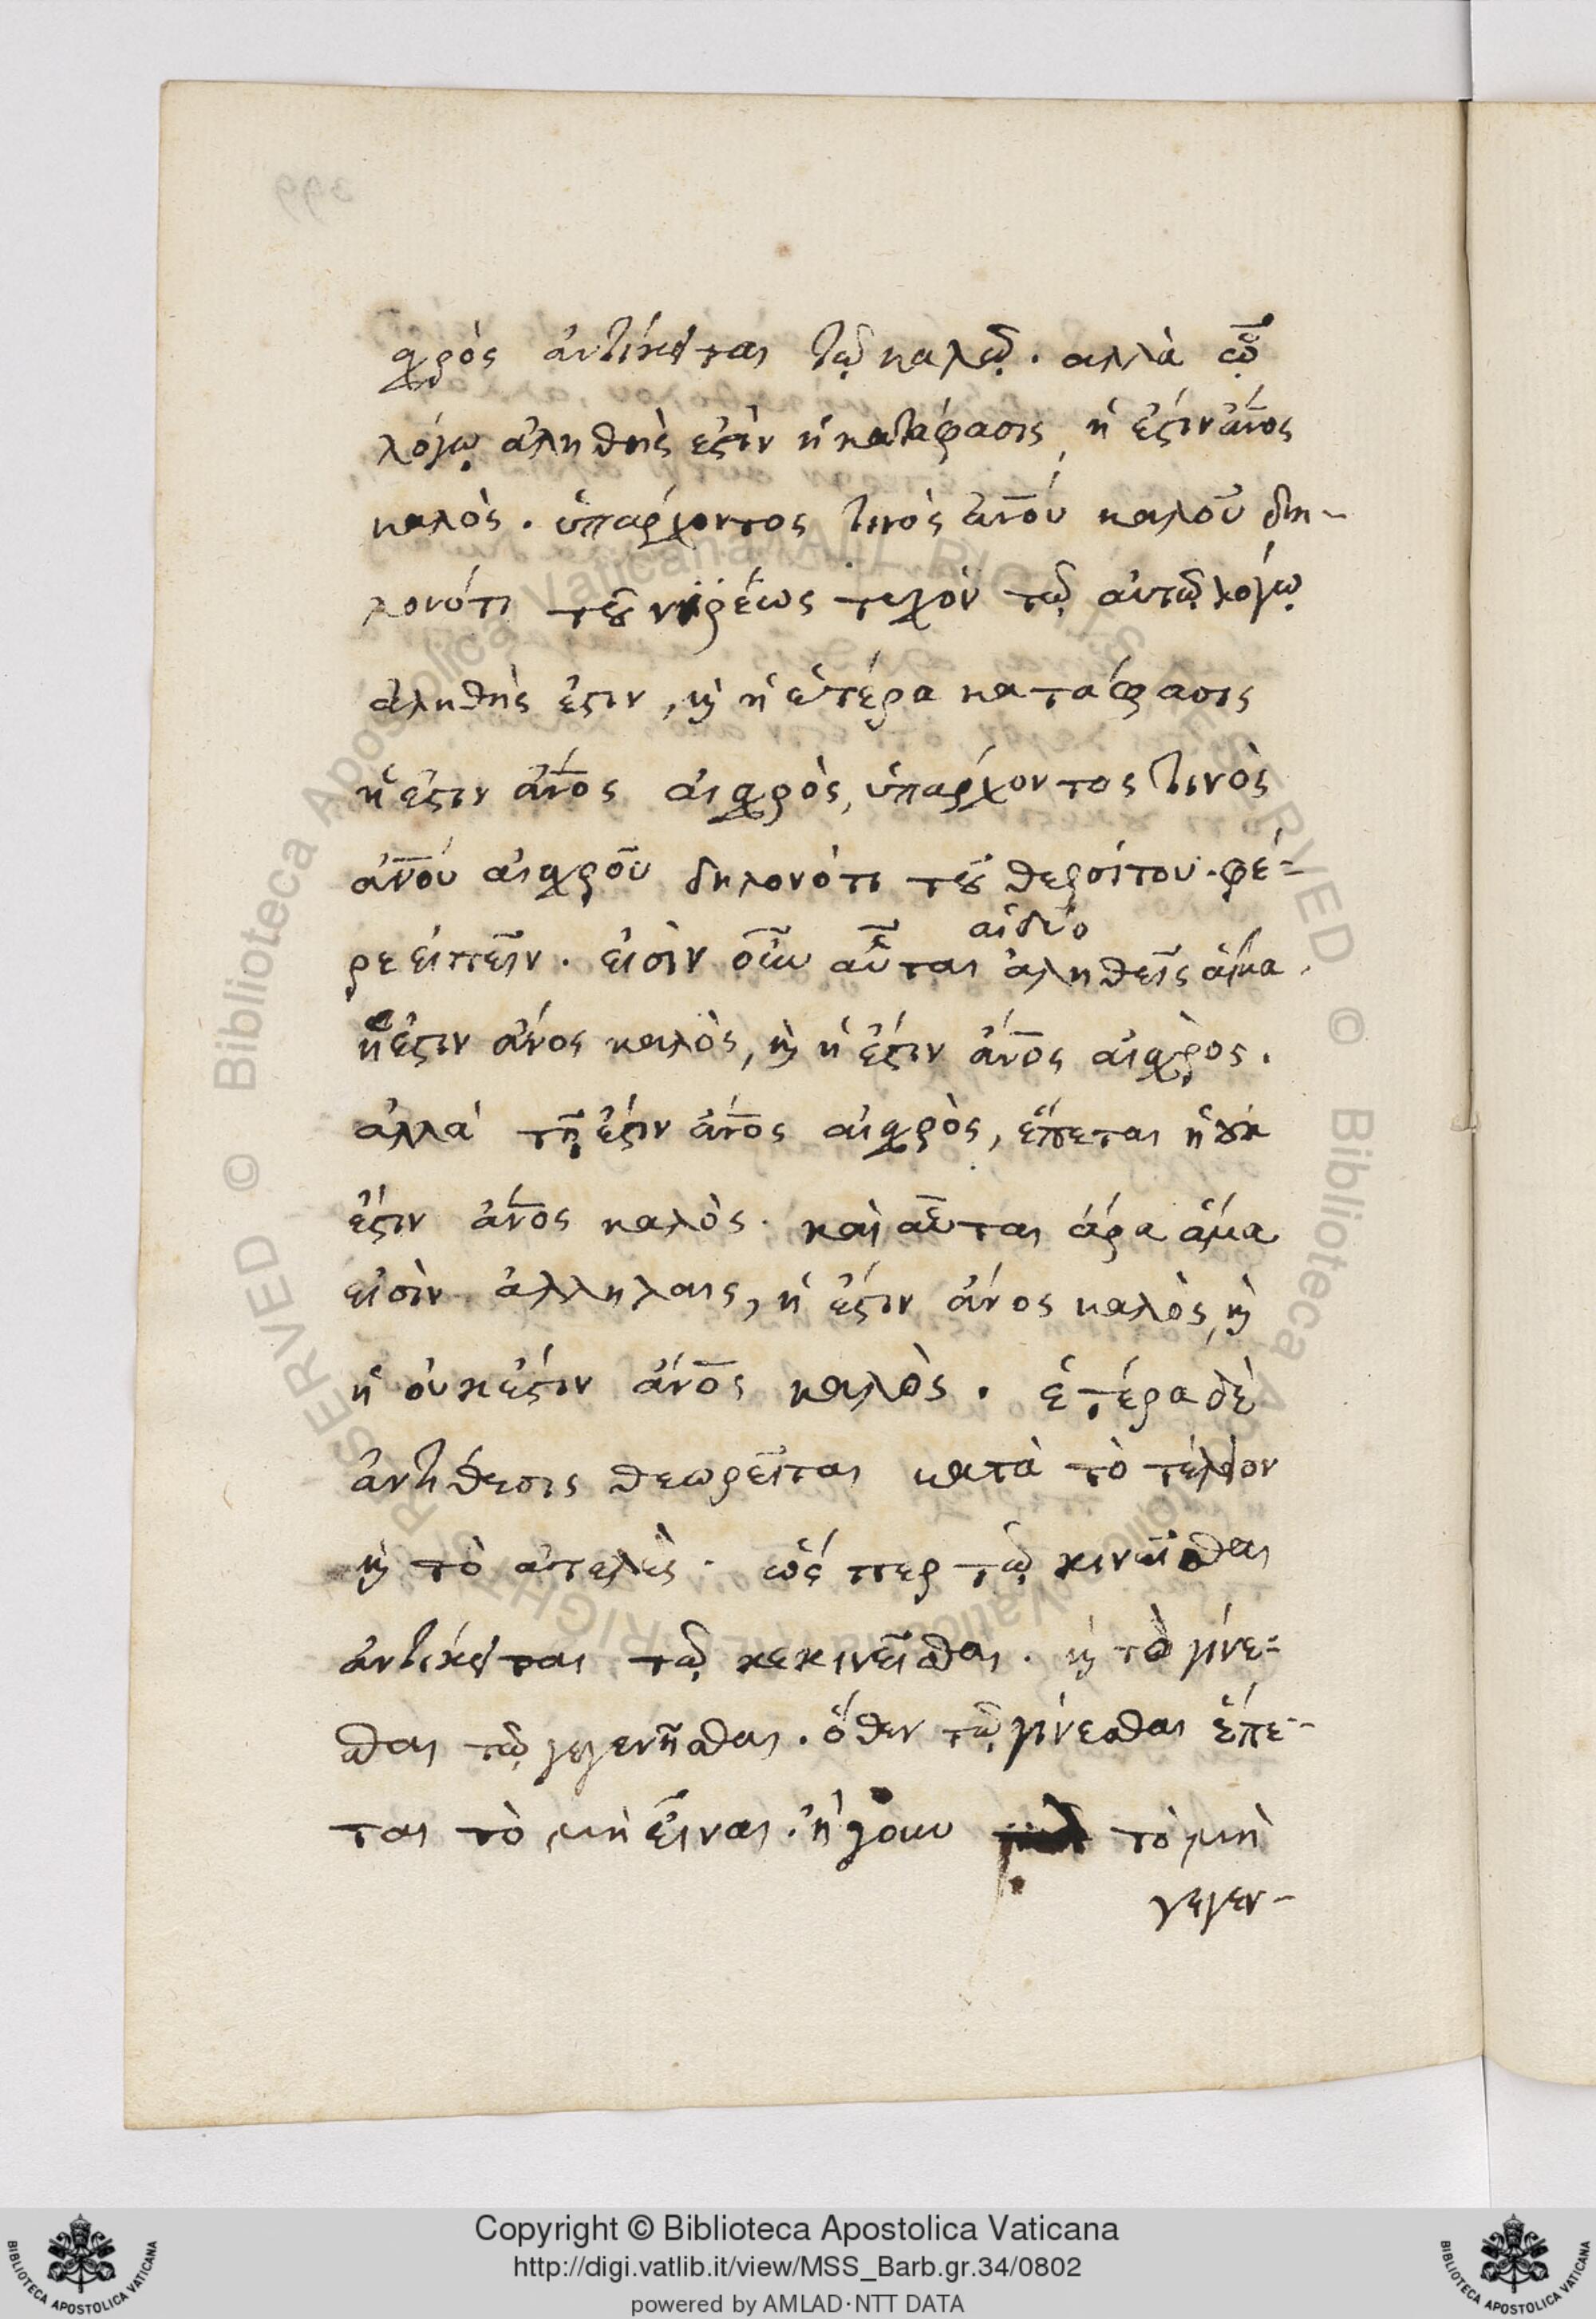 χρὸς ἀντίκειται τῷ καλῷ. αλλὰ ᾧ
λόγῳ ἀληθὴς ἐστὶν ἡ κατάφασις, ἡ ἔστιν ἄνος
καλὸς. ὑπαρχοντος τινὸς ἀνου καλοῦ δη-
λονότι τοῦ νιρέως τυχὸν τῷ αὐτῷ λόγῳ
ἀληθὴς ἐστιν, καὶ ἡ ἑτέρα κατάφασις
ἡ ἐστιν ἄνος αἰχρὸς, ὑπαρχοντος τινὸς
ἀνου αἰχροῦ δηλονότι τοῦ θερσίτου. φέ-
ρε εἰπεῖν. εἰσὶν οὖν αὗται αἱ δύο ἀληθεῖς ἅμα.
ἡ ἐστιν ἄνος καλὸς, καὶ ἡ ἔστιν ἄνος αἰχρὸς.
ἀλλὰ τῇ ἔστιν ἄνος αἰχρὸς, ἕπεται ἡ οὐκ
ἔστιν ἄνος καλὸς. καὶ αὗται ἄρα ἅμα
εἰσὶν ἀλλήλαις, ἡ ἔστιν ἄνος καλὸς, καὶ
ἡ οὐκ ἔστιν ἄνος καλὸς. ἑτέρα δὲ
ἀντίθεσις θεωρεῖται κατὰ τὸ τέλειον
καὶ τὸ ἀτελὲς. ὥσπερ τῷ κινεῖσθαι
ἀντίκειται τῷ κεκινεῖσθαι. καὶ τὸ γίνε-
σθαι τῷ γεγενῆσθαι. ὅθεν τῷ γίνεσθαι ἕπε-
ται τὸ μὴ εἶναι. ἤγουν τὸ μὴ
γεγεν-
Copyright © Biblioteca Apostolica Vaticana
http://digi.vatlib.it/view/MSS_Barb.gr.34/0802
powered by AMLAD·NTT DATA